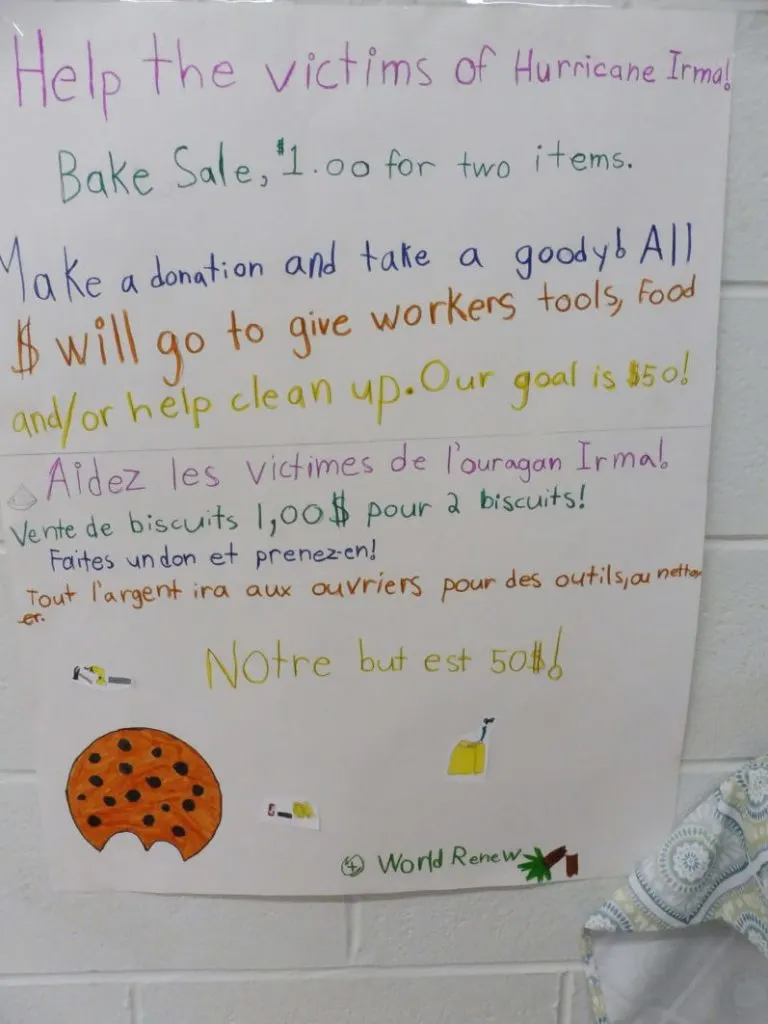 Help the victims of Hurricane Irma!
Bake Sale, $1.00 for two items.
Make a donation and take a goody! All
$ will go to give workers tools, Food
and/or help clean up. Our goal is $50!
Aidez les victimes de l'ouragan Irma!
Vente de biscuits 1,00$ pour 2 biscuits!
Faites un don et prenez-en!
Tout l'argent ira aux ouvriers pour des outils, ou nettoy
er.
Notre but est 50$!
World Renew